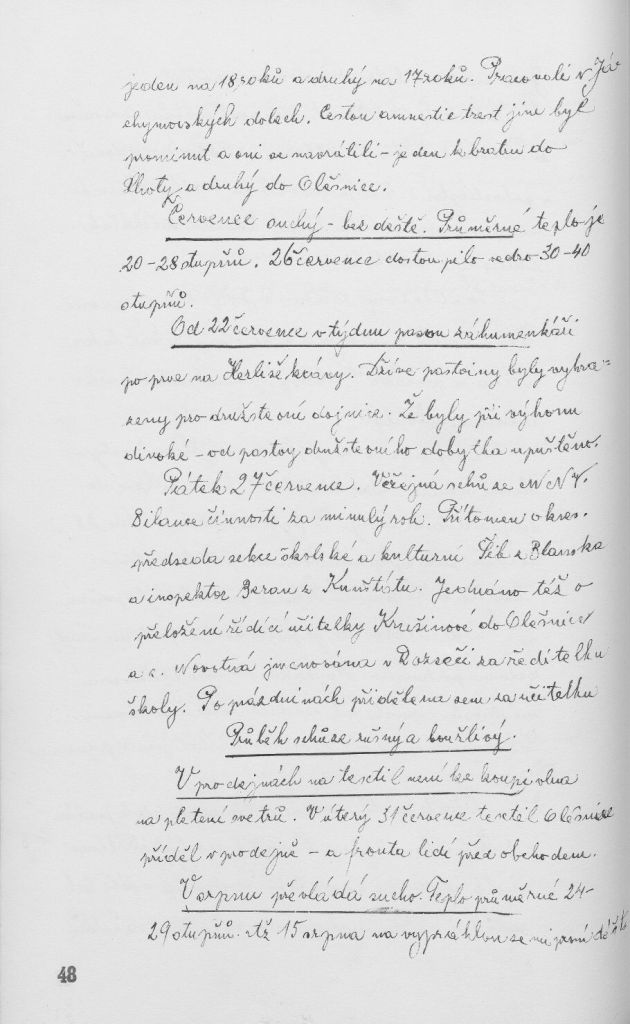 jeden na 18 roků a druhý na 17 roků. Pracovali v Já-
chymovských dolech. Cestou amnestie trest jim byl
prominut a oni se navrátili – jeden k bratru do
Lhoty a druhý do Olešnice.
Červenec suchý – bez deště. Průměrné teplo je
20–28 stupňů. 26 července dostoupilo vedro 30–40
stupňů.
Od 22 července v týdnu pasou záhumenkáři
po prve na Herliše krávy. Dříve pastviny byly vyhra=
zeny pro družstevní dojnice. Že byly při výhonu
divoké – od pastvy družstevního dobytka upuštěno.
Pátek 27 července. Veřejná schůze M N V.
Bilance činnosti za minulý rok. Přítomen okres.
předseda sekce školské a kulturní z Blanska
a inspektor Beran z Kunštátu. Jednáno též o
přeložení řídící učitelky do Olešnice
a s. Novotná jmenována v Rozseči za ředitelku
školy. Po prázdninách přidělena sem za učitelku
Průběh schůze rušný a bouřlivý.
V prodejnách na textil není ke koupi vlna
na pletení svetrů. V úterý 31 července textil Olešnice
příděl v prodejně – a fronta lidí před obchodem.
V srpnu převládá sucho. Teplo průměrné 24–
29 stupňů. Až 15 srpna na vyprahlou zemi první déšť.
48